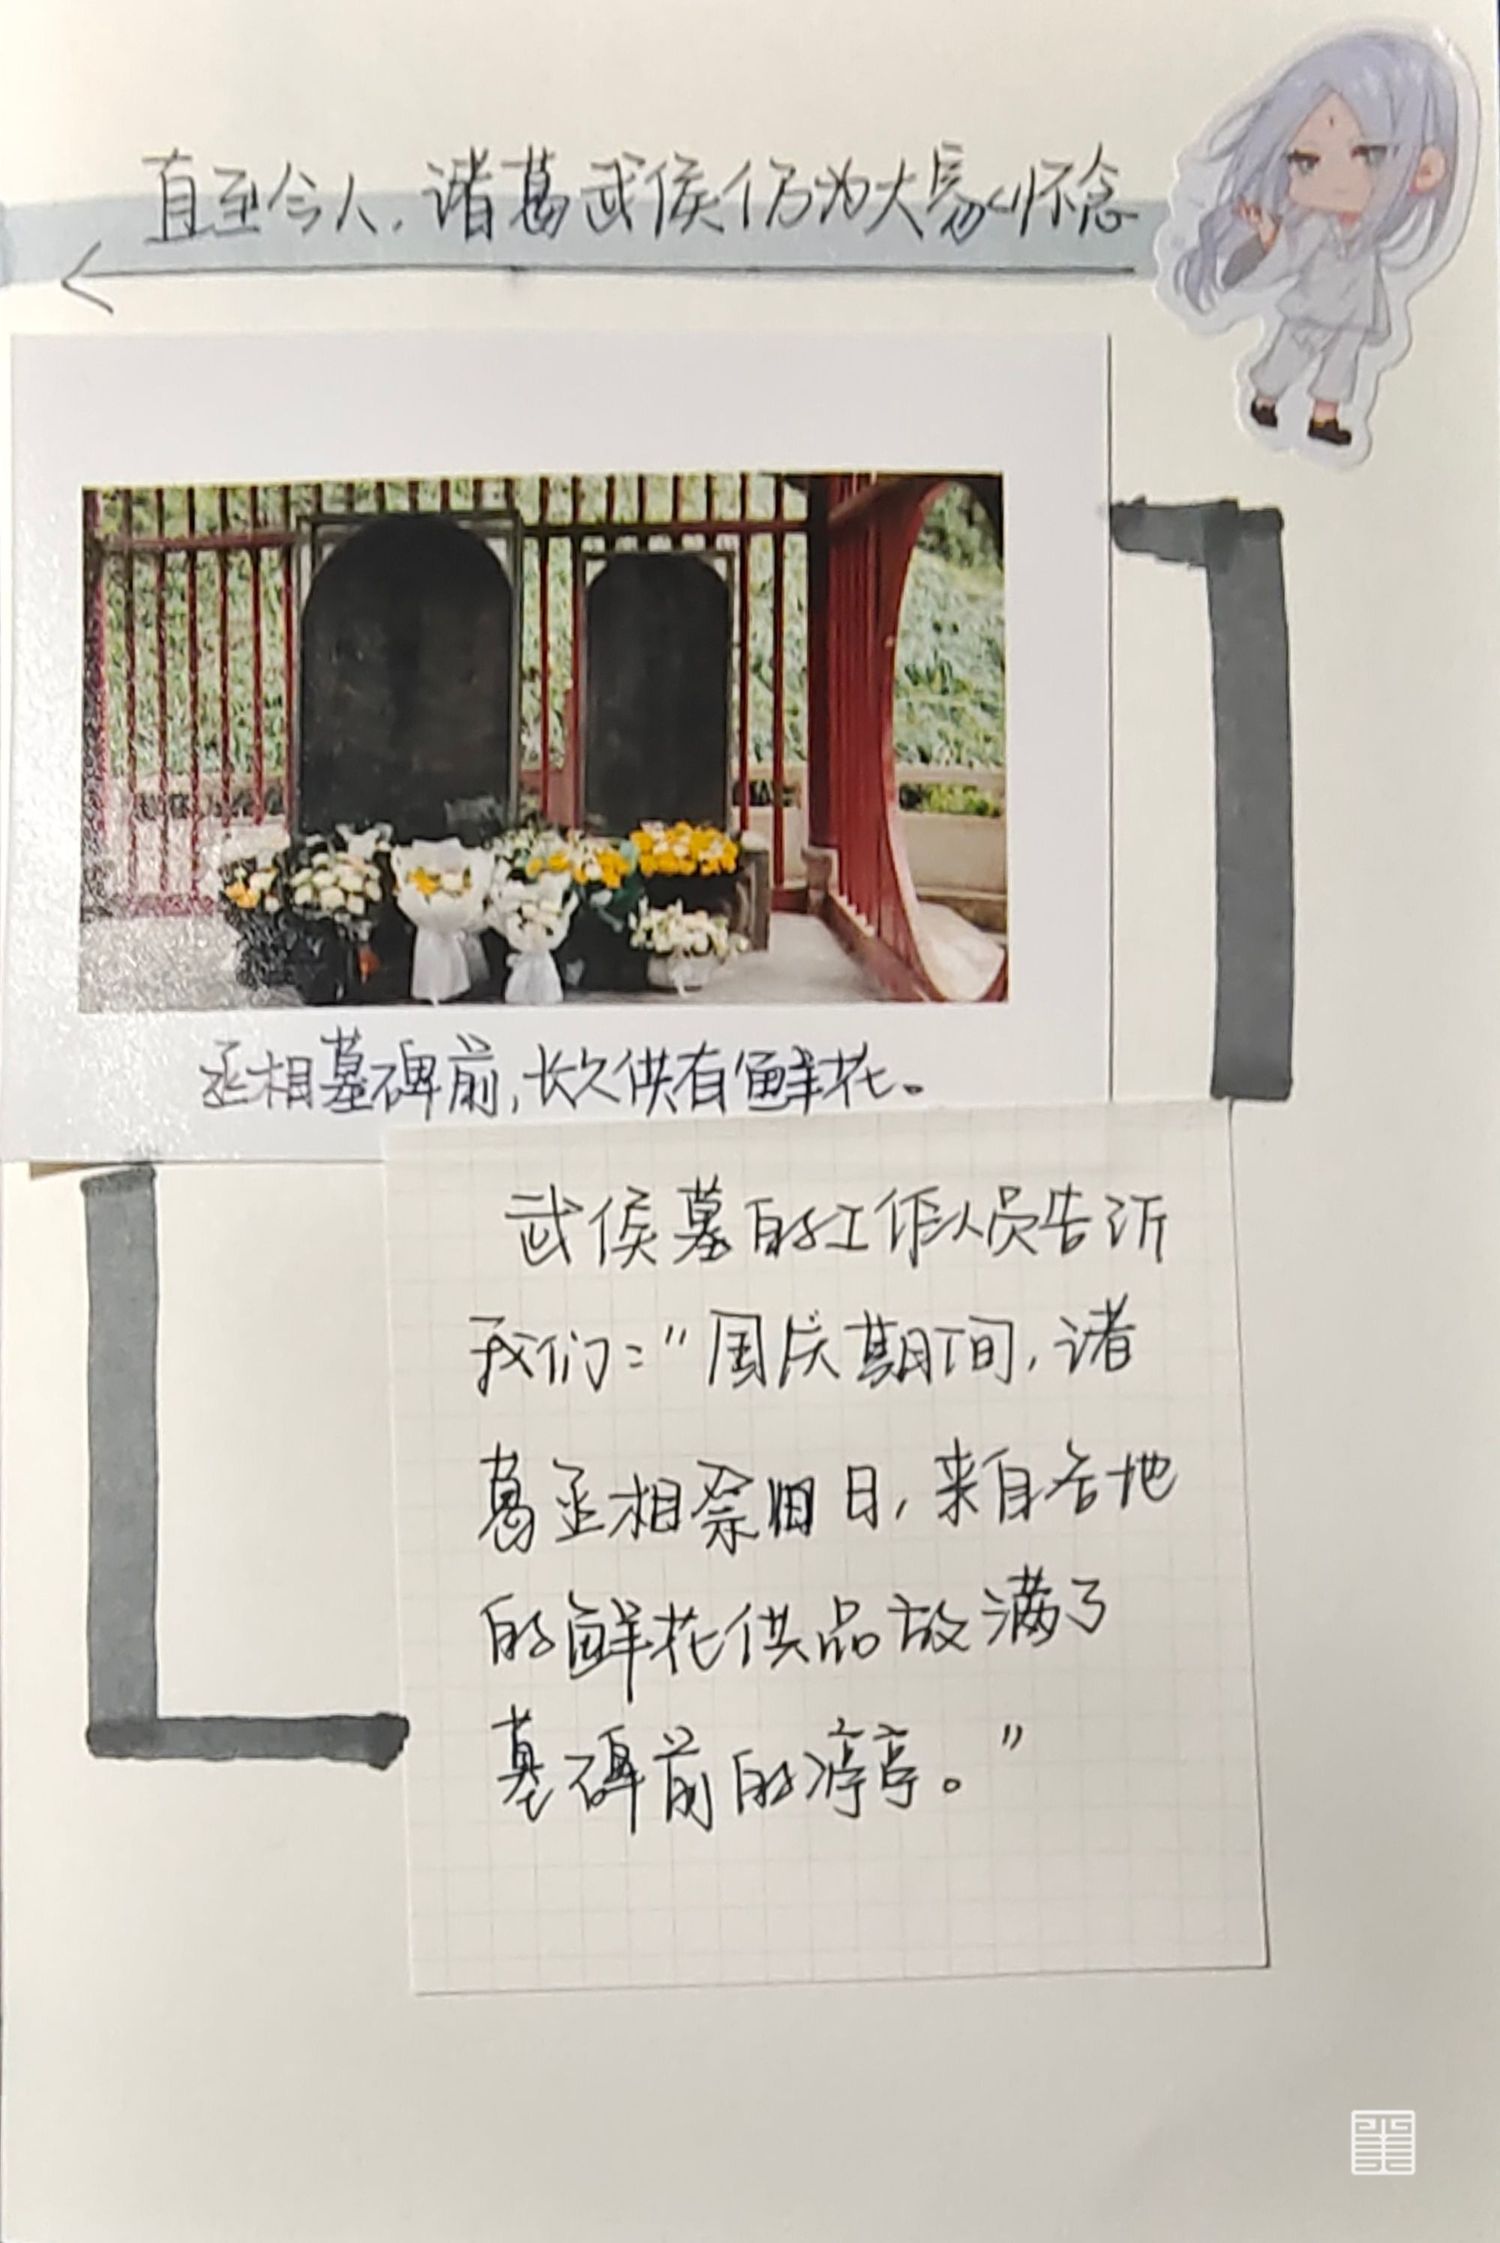 直至今人，诸葛武侯仍为大家怀念
丞相墓碑前，长久供有鲜花。
武侯墓的工作人员告诉
我们："国庆期间，诸
葛丞相祭日，来自各地
的鲜花供品放满了
墓碑前的凉亭。"